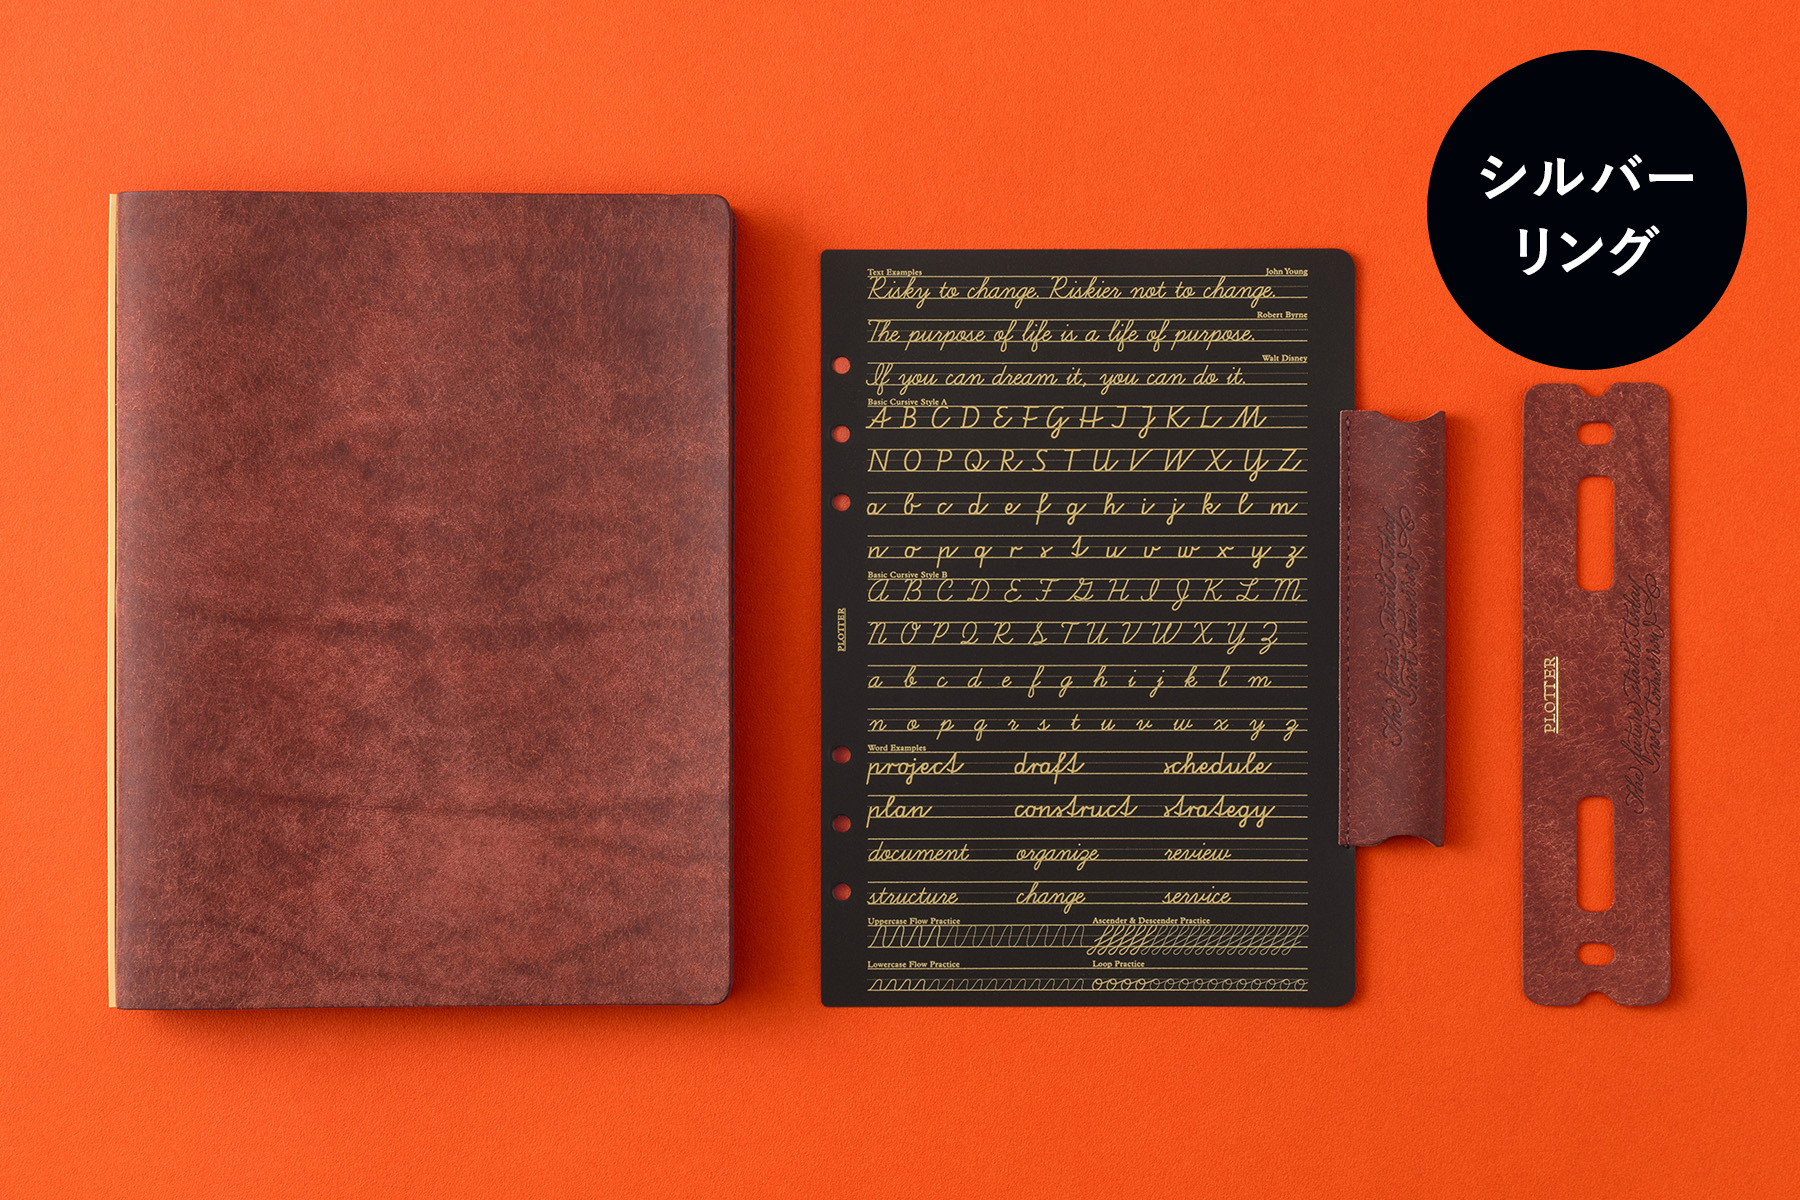 シルバー
リング
Text Examples
John Young
Risky to change. Riskier not to change.
Robert Byrne
The purpose of life is a life of purpose.
Walt Disney
If you can dream it, you can do it.
Basic Cursive Style A
A B C D E F G H I J K L M
N O P Q R S T U V W X Y Z
a b c d e f g h i j k l m
n o p q r s t u v w x y z
Basic Cursive Style B
A B C D E F G H I J K L M
N O P Q R S T U V W X Y Z
a b c d e f g h i j k l m
n o p q r s t u v w x y z
Word Examples
project draft schedule
plan construct strategy
document organize review
structure change service
Uppercase Flow Practice
Ascender & Descender Practice
Lowercase Flow Practice
Loop Practice
PLOTTER
The future starts today
not tomorrow
PLOTTER
The future starts today
not tomorrow